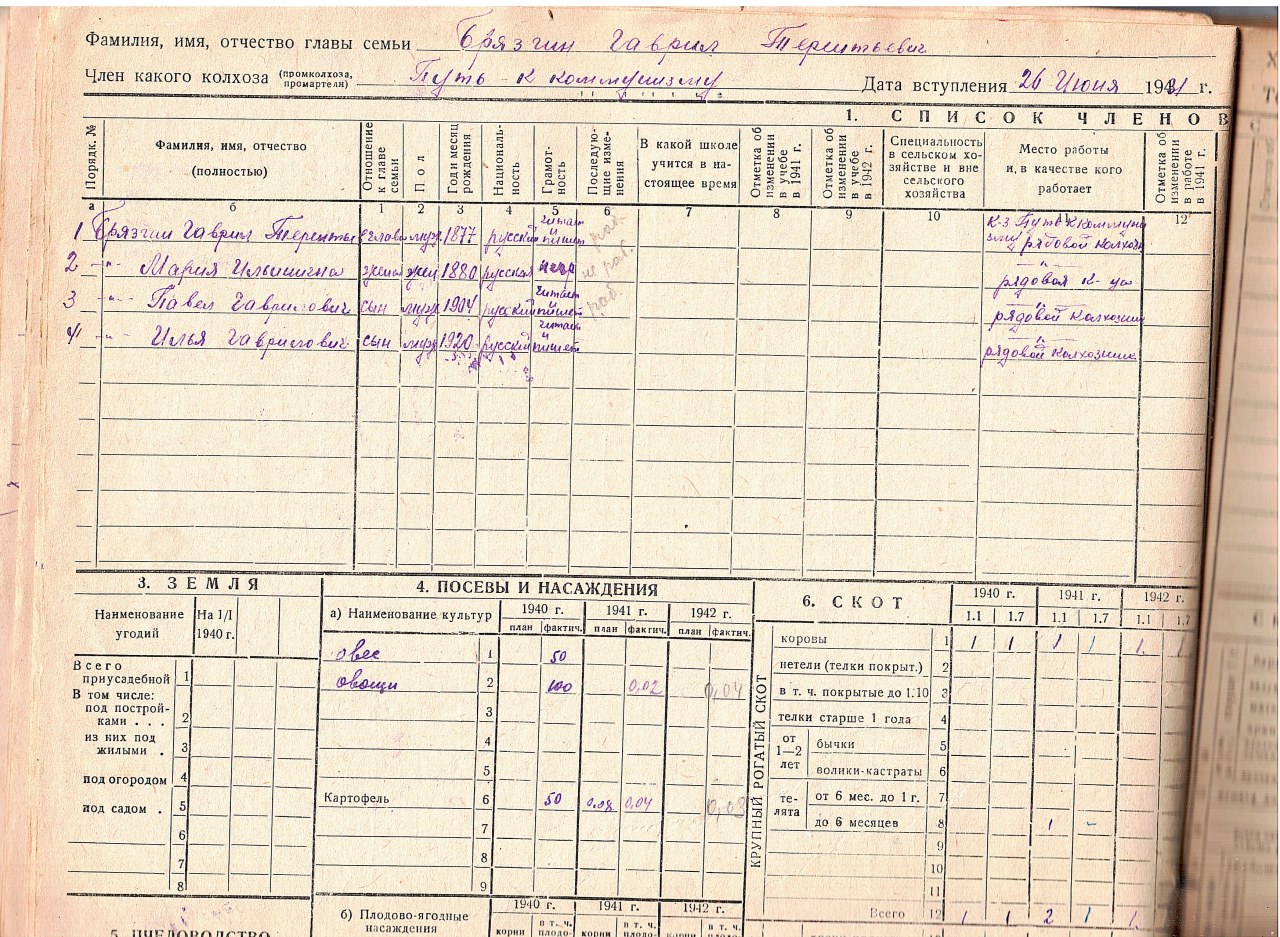 Фамилия, имя, отчество главы семьи Брязгин Гаврил Терентьевич
Член какого колхоза (промколхоза, промартели) Путь-к коммунизму Дата вступления 26 Июня 1931 г.
1. СПИСОК ЧЛЕНОВ
Порядк. № Фамилия, имя, отчество (полностью) Отношение к главе семьи Пол Год и месяц рождения Националь-ность Грамот-ность Последую-щие изме-нения В какой школе учится в на-стоящее время Отметка об изменении в учебе в 1941 г. Отметка об изменении в учебе в 1942 г. Специальность в сельском хо-зяйстве и вне сельского хозяйства Место работы и, в качестве кого работает Отметка об изменении в работе в 1941 г.
а б 1 2 3 4 5 6 7 8 9 10 11 12
1 Брязгин Гаврил Теренть глава муж 1877 русский читает пишет раб. К-з Путь к коммунизму рядовой колхозн
2 -"- Мария Ильинична жена жен 1880 русская негр не раб. -"- рядовой к-ца
3 -"- Павел Гаврилович сын муж 1904 русский читает и пишет раб. -"- рядовой колхозник
4 -"- Илья Гаврилович сын муж 1920 русский читает и пишет -"- рядовой колхозник
3. ЗЕМЛЯ
Наименование угодий На 1/I 1940 г.
Всего приусадебной 1
В том числе:
под построй-ками . . . 2
из них под жилыми . 3
под огородом 4
под садом . 5
6
7
8
5. ПЧЕЛОВОДСТВО
4. ПОСЕВЫ И НАСАЖДЕНИЯ
а) Наименование культур 1940 г. 1941 г. 1942 г.
план фактич. план фактич. план фактич.
овес 1 50
овощи 2 100 0,02 0,04
3
4
5
Картофель 6 50 0,04 0,03
7
8
9
б) Плодово-ягодные насаждения 1940 г. 1941 г. 1942 г.
корни в т. ч. плодо- корни в т. ч. плодо- корни в т. ч. плодо-
6. СКОТ 1940 г. 1941 г. 1942 г.
1.1 1.7 1.1 1.7 1.1 1.7
КРУПНЫЙ РОГАТЫЙ СКОТ
коровы 1 1 1 1 1 1
нетели (телки покрыт.) 2
в т. ч. покрытые до 1.10 3
телки старше 1 года 4
от 1—2 лет бычки 5
волики-кастраты 6
те-лята от 6 мес. до 1 г. 7
до 6 месяцев 8 1 -
9
10
11
Всего 12 1 1 2 1 1